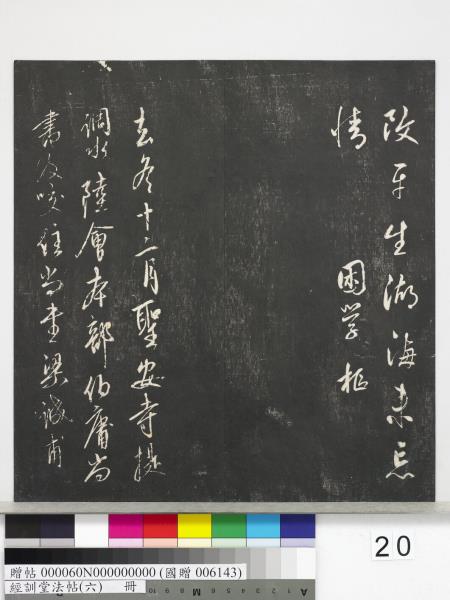 改平生湖海未忘
情 困學枢
去冬十二月聖安寺提
調水陸會本部伯庸尚
書及咬住尚書梁誠甫
20
贈帖 000060N000000000 (國贈 006143)
經訓堂法帖(六) 冊